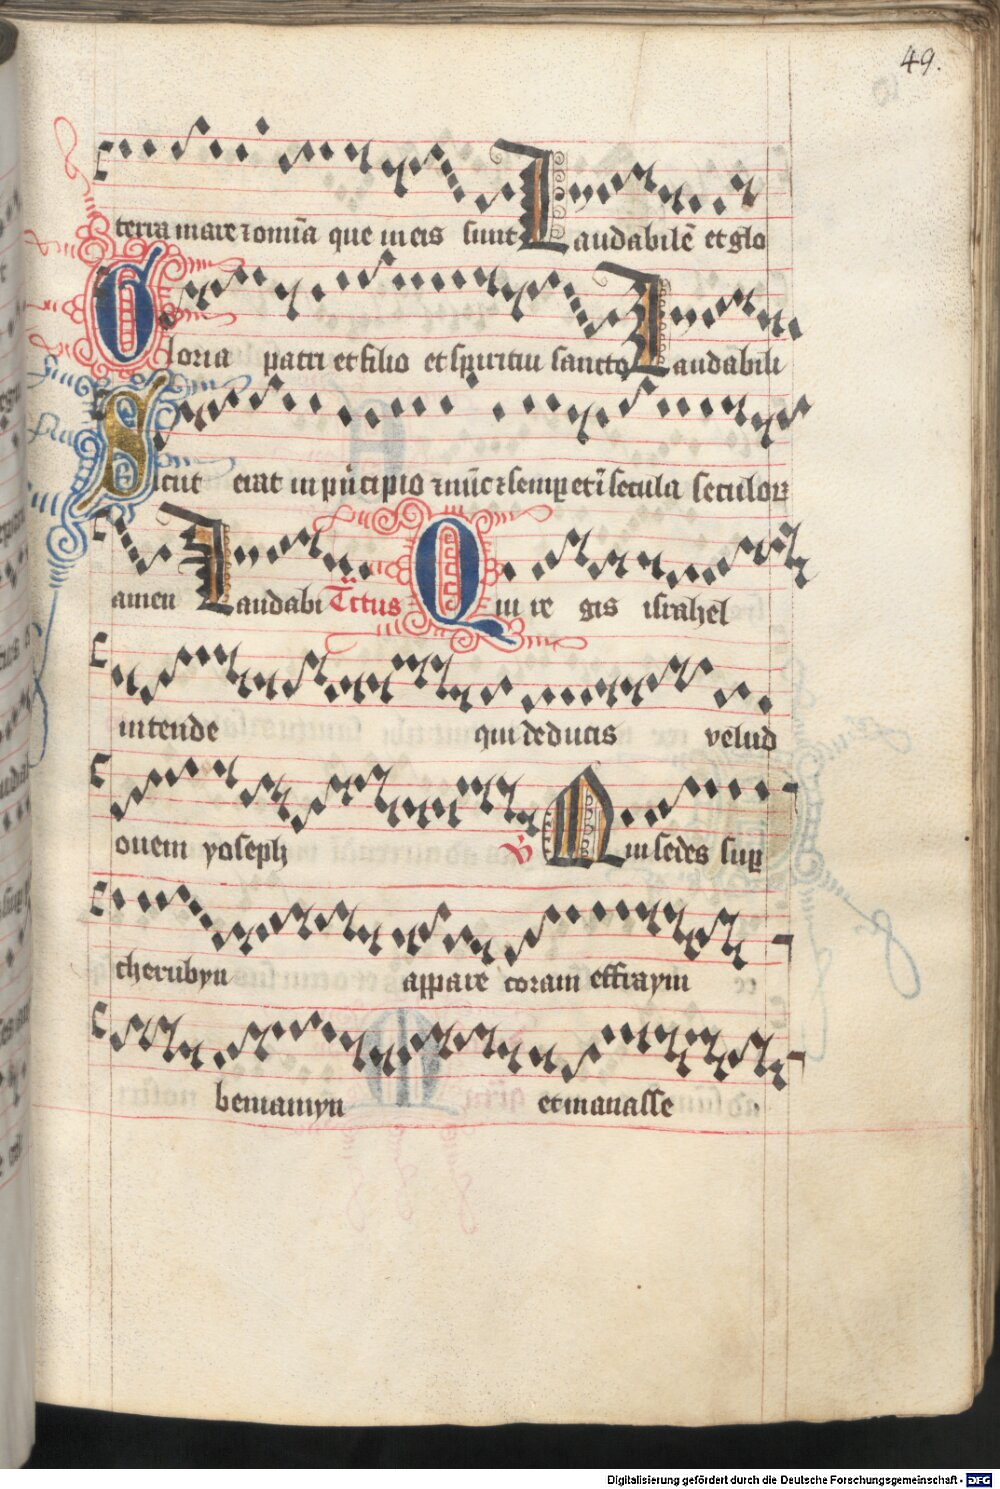 49.
terra mare ⁊ om̄ia que in eis sunt Laudabilē et glo
Gloria patri et filio et spiritui sancto Laudābili
Sicut erat in pͥncipio ⁊ nūc ⁊ semꝑ et ī secula seculoꝝ
amen Laudabi Tc̄tus Qui re gis israhel
intende qui deducis velud
ouem yoseph V Qui sedes suꝑ
cherubyn appare coram effraym
beniamyn et manasse
Digitalisierung gefördert durch die Deutsche Forschungsgemeinschaft - DFG